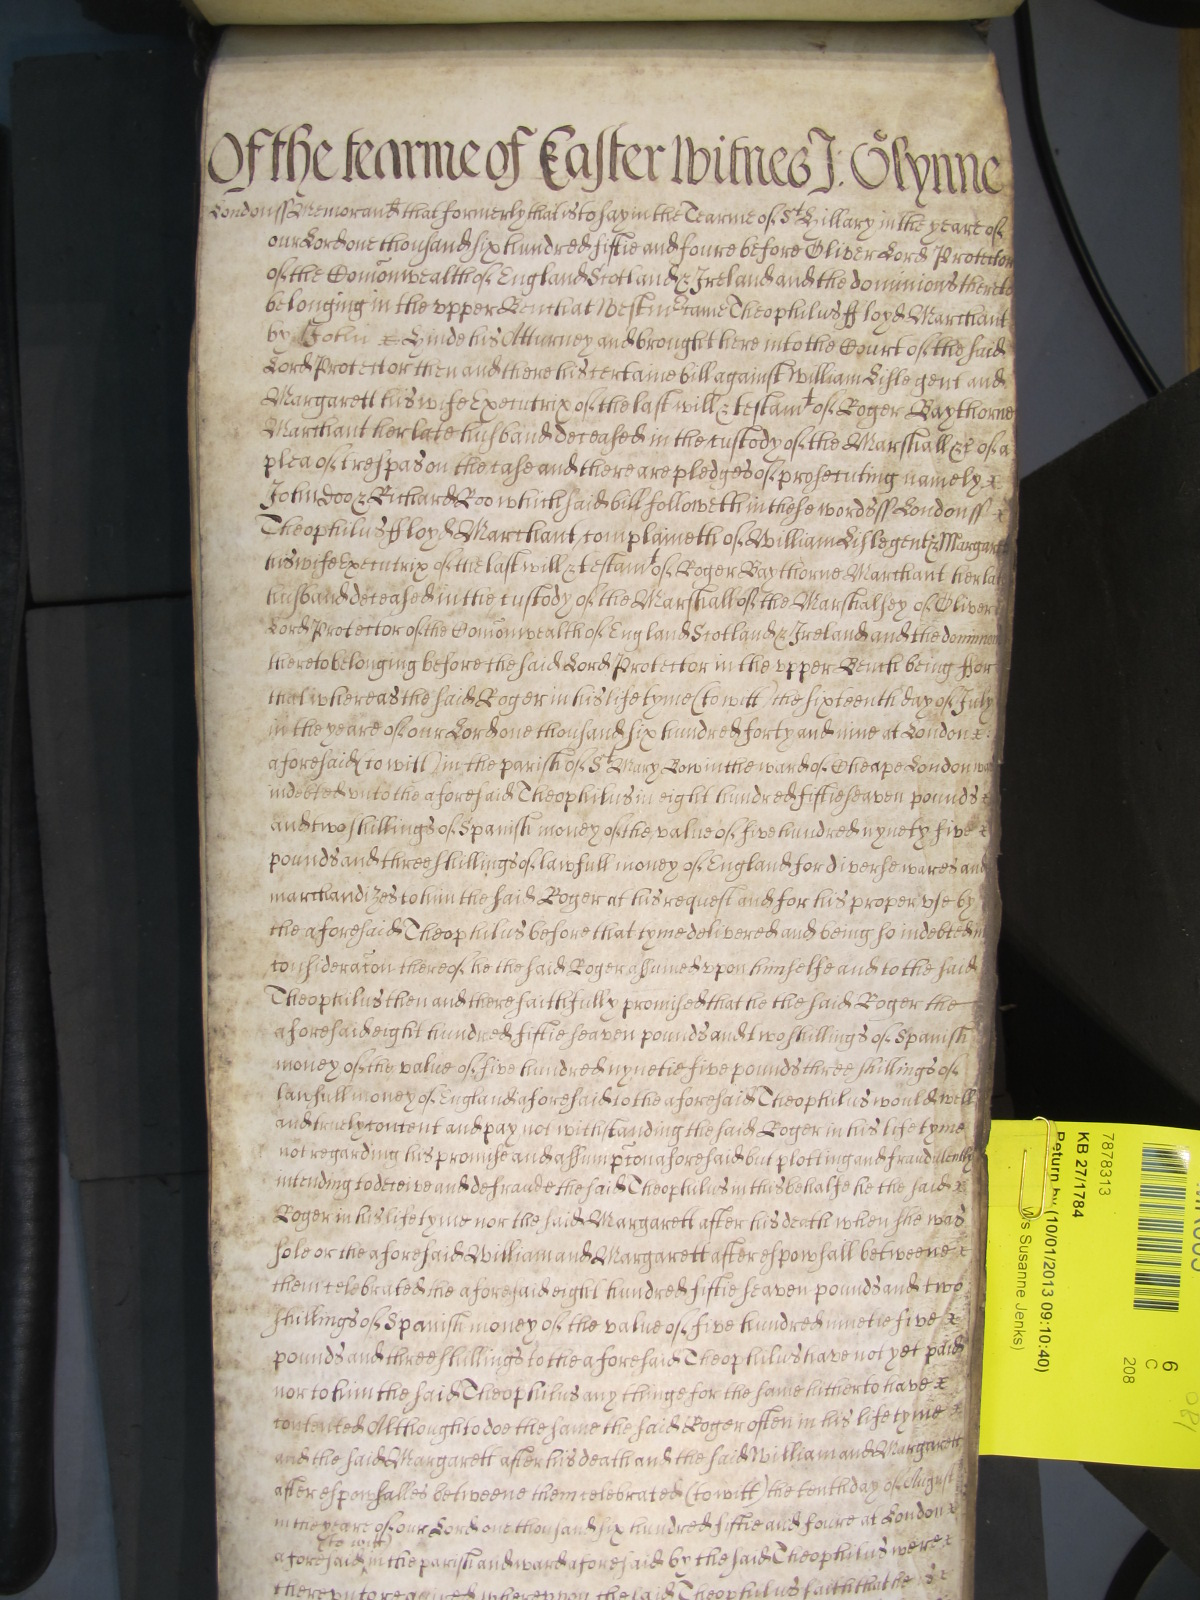 Of the tearme of Easter Witnes J: Glynne
London ss Memorand that formerly that is to say in the Tearme of St Hillary in the yeare of
our Lord one thousand six hundred fiftie and foure before Oliver Lord Protector
of the Comonwealth of England Scotland & Ireland and the dominions thereto
belonging in the vpper Bench at Westmr came Theophilus ffloyd Marchant
by John Hinde his Atturney and brought here into the Court of the said
Lord Protector then and there his certaine bill against William Lisle gent and
Margarett his wife Executrix of the last will & testamt of Roger Baythorne
Marchant her late husband deceased in the custody of the Marshall &c of a
plea of trespas on the case and there are pledges of prosecuting namely
John Doo & Richard Roo which said bill followeth in these words ss London ss
Theophilus ffloyd Marchant complaineth of William Lisle gent & Margarett
his wife Executrix of the last will & testamt of Roger Baythorne Marchant her late
husband deceased in the custody of the Marshall of the Marshalsey of Oliver
Lord Protector of the Comonwealth of England Scotland & Ireland and the dominions
thereto belonging before the said Lord Protector in the vpper Bench being ffor
that whereas the said Roger in his life tyme (to witt) the sixteenth day of July
in the yeare of our Lord one thousand six hundred forty and nine at London
aforesaid (to witt) in the parish of St Mary Bow in the ward of Cheape London was
indebted vnto the aforesaid Theophilus in eight hundred fiftie seaven pounds
and two shillings of Spanish money of the value of five hundred nynety five
pounds and three shillings of lawfull money of England for diverse wares and
marchandizes to him the said Roger at his request and for his proper vse by
the aforesaid Theophilus before that tyme delivered and being so indebted in
consideracon thereof he the said Roger assumed vpon himselfe and to the said
Theophilus then and there faithfully promised that he the said Roger the
aforesaid eight hundred fiftie seaven pounds and two shillings of Spanish
money of the value of five hundred nynetie five pounds three shillings of
lawfull money of England aforesaid to the aforesaid Theophilus would well
and truely content and pay not withstanding the said Roger in his life tyme
not regarding his promise and assumpcon aforesaid but plotting and fraudulently
intending to deceive and defraude the said Theophilus in this behalfe he the said
Roger in his life tyme nor the said Margarett after his death when she was
sole or the aforesaid William and Margarett after espowsall betweene
them celebrated the aforesaid eight hundred fiftie seaven pounds and two
shillings of Spanish money of the value of five hundred ninetie five
pounds and three shillings to the aforesaid Theophilus have not yet paid
nor to him the said Theophilus any thinge for the same hitherto have
contented Although to doe the same the said Roger often in his life tyme
and the said Margarett after his death and the said William and Margarett
after espowsalles betweene them celebrated (to witt) the tenth day of August
in the yeare of our Lord one thousand six hundred fiftie and foure at London
aforesaid (to witt) in the parish and ward aforesaid by the said Theophilus were
therevnto required wherevpon the said Theophilus saith that he
7878313
KB 27/1784
Return by (10/01/2013 09:10:40)
Ms Susanne Jenks)
6
C
208